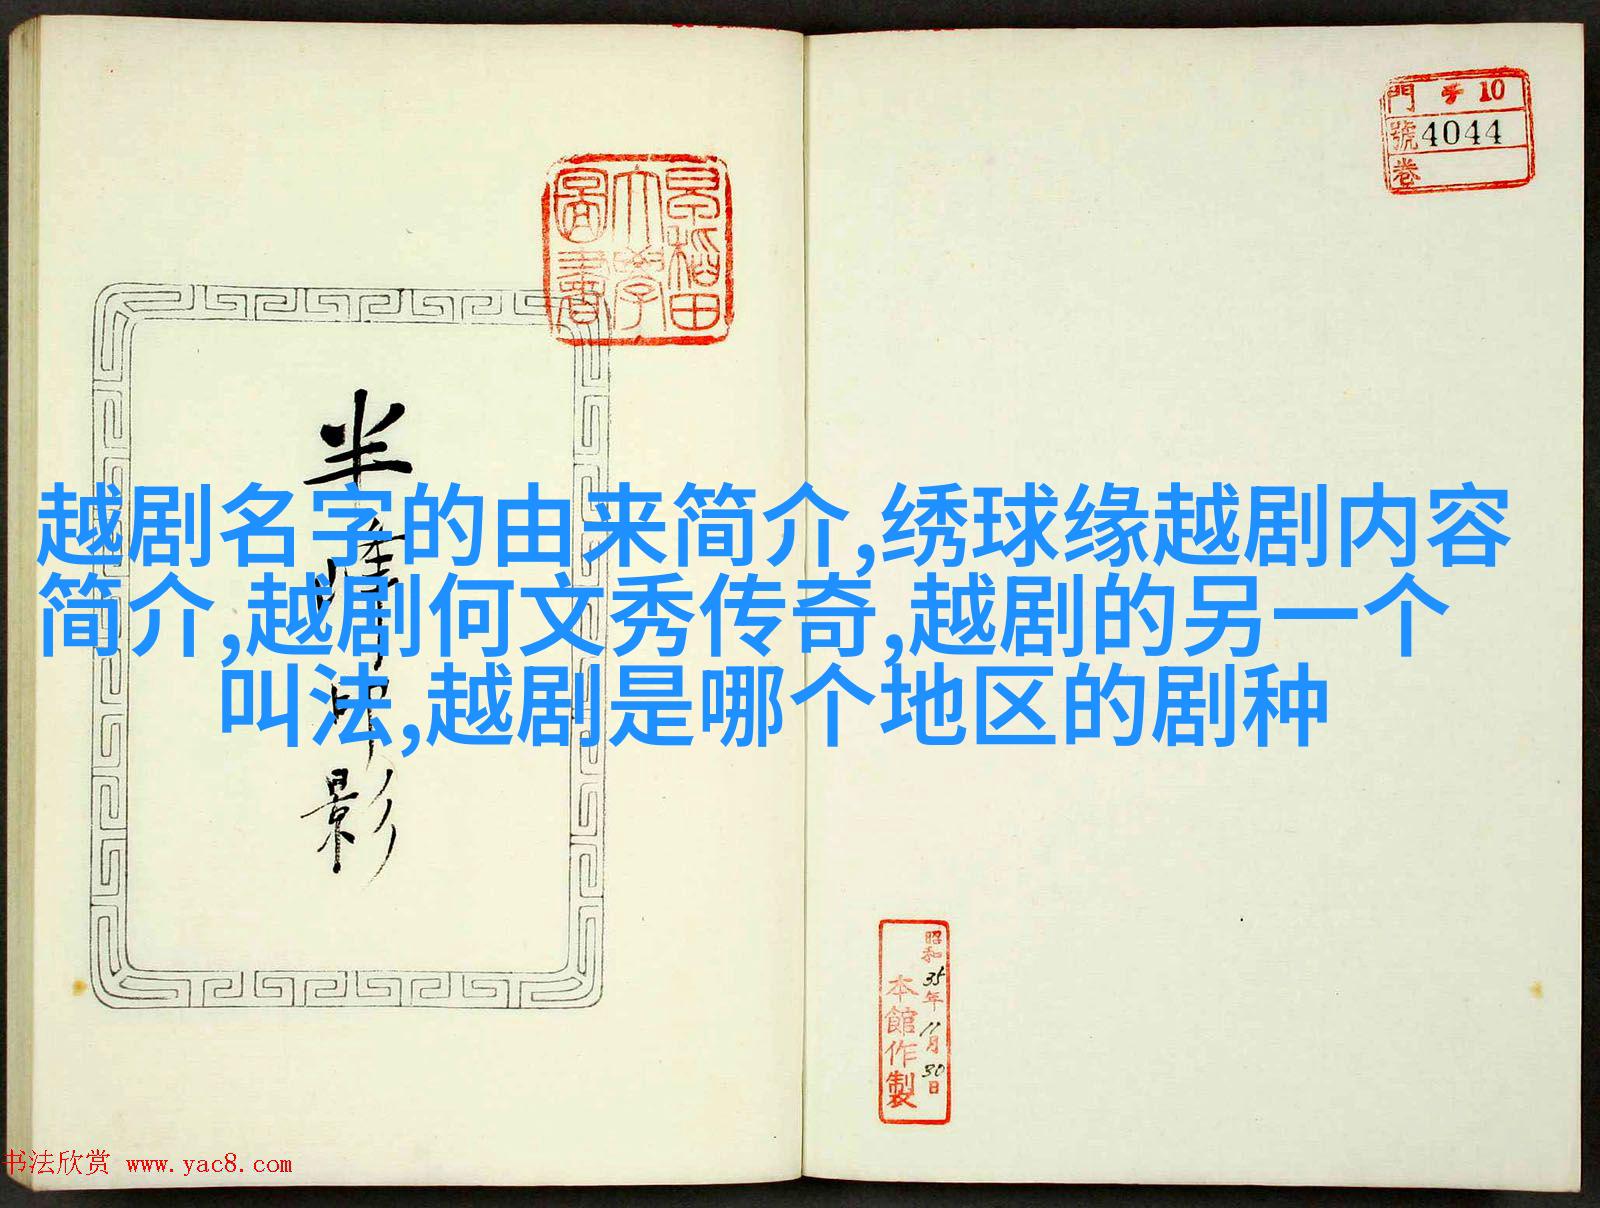 門 10
號 4044
卷
早稲田
大學
圖書
半
印
影
越剧名字的由来简介,绣球缘越剧内容
简介,越剧何文秀传奇,越剧的另一个
叫法,越剧是哪个地区的剧种
昭和35年11月30日
本館作製
书法欣赏 www.yac8.com